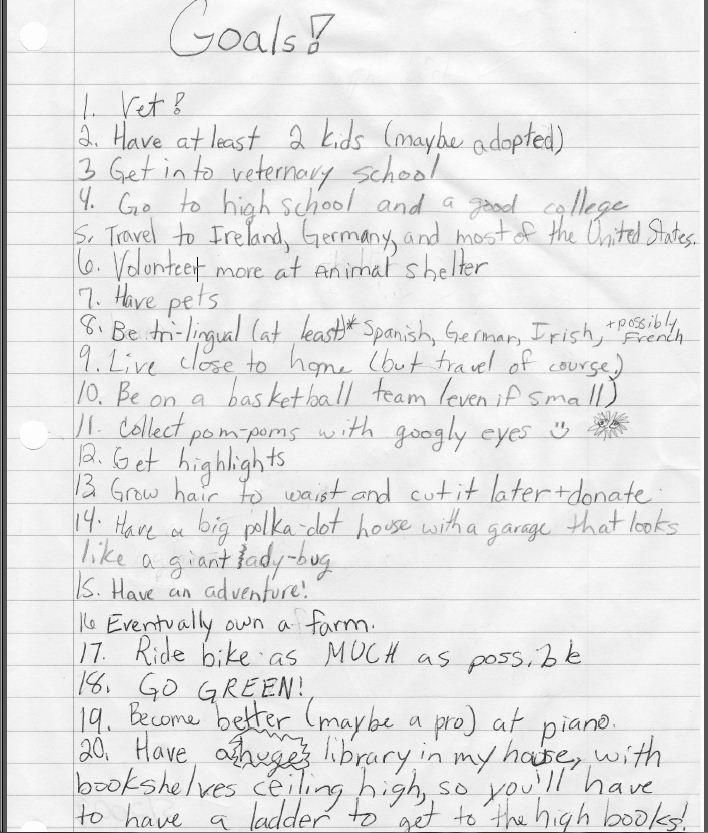 Goals!
1. Vet?
2. Have at least 2 kids (maybe adopted)
3 Get into veternary school
4. Go to high school and a good college
5. Travel to Ireland, Germany, and most of the United States.
6. Volunteer more at Animal shelter
7. Have pets
8. Be tri-lingual (at least)* Spanish, German, Irish, + possibly French
9. Live close to home (but travel of course)
10. Be on a basketball team (even if small)
11. Collect pom-poms with googly eyes
12. Get highlights
13. Grow hair to waist and cut it later + donate.
14. Have a big polka-dot house with a garage that looks
like a giant lady-bug
15. Have an adventure!
16 Eventually own a farm.
17. Ride bike as MUCH as possible
18. GO GREEN!
19. Become better (maybe a pro) at piano.
20. Have a huge library in my house, with
bookshelves ceiling high, so you'll have
to have a ladder to get to the high books!